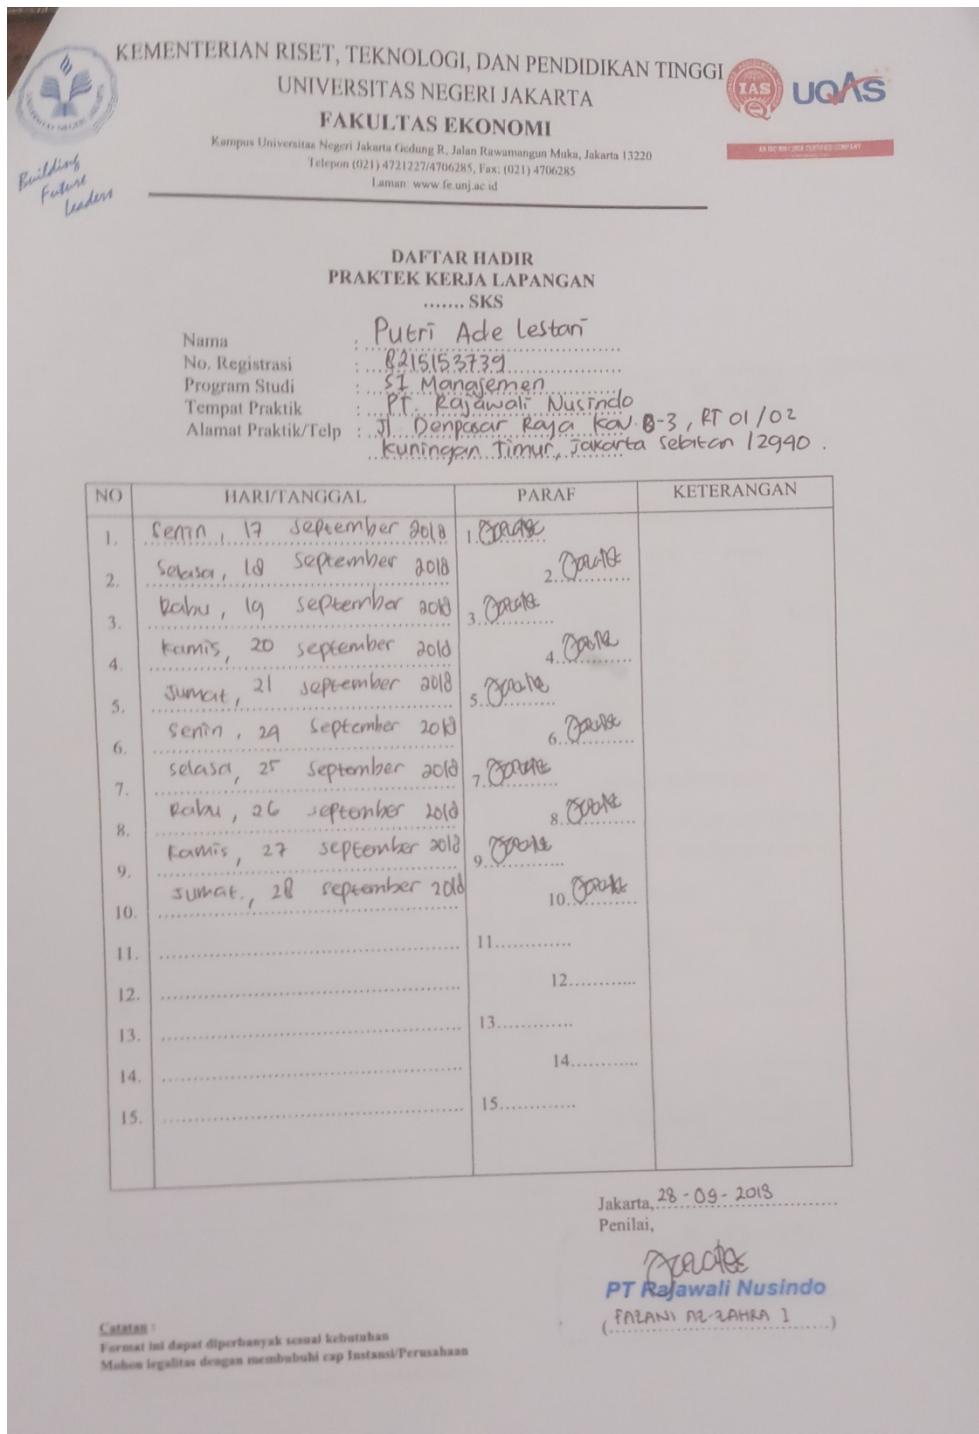 KEMENTERIAN RISET, TEKNOLOGI, DAN PENDIDIKAN TINGGI
UNIVERSITAS NEGERI JAKARTA
FAKULTAS EKONOMI
Kampus Universitas Negeri Jakarta Gedung R, Jalan Rawamangun Muka, Jakarta 13220
Telepon (021) 4721227/4706285, Fax: (021) 4706285
Laman: www.fe.unj.ac.id
Building
Future
Leaders
IAS
UQAS
DAFTAR HADIR
PRAKTEK KERJA LAPANGAN
....... SKS
Nama : Putri Ade Lestari
No. Registrasi : 8215153739
Program Studi : S1 Manajemen
Tempat Praktik : PT. Rajawali Nusindo
Alamat Praktik/Telp : Jl. Denpasar Raya Kav. B-3, RT 01/02
Kuningan Timur, Jakarta Selatan 12940.
NO HARI/TANGGAL PARAF KETERANGAN
1. Senin, 17 September 2018 1.
2. Selasa, 18 September 2018 2.
3. Rabu, 19 September 2018 3.
4. Kamis, 20 September 2018 4.
5. Jumat, 21 September 2018 5.
6. Senin, 24 September 2018 6.
7. Selasa, 25 September 2018 7.
8. Rabu, 26 September 2018 8.
9. Kamis, 27 September 2018 9.
10. Jumat, 28 September 2018 10.
11. 11.
12. 12.
13. 13.
14. 14.
15. 15.
Jakarta, 28-09-2018
Penilai,
PT Rajawali Nusindo
(FAZANI AZ-ZAHRA I)
Catatan :
Format ini dapat diperbanyak sesuai kebutuhan
Mohon legalitas dengan membubuhi cap Instansi/Perusahaan